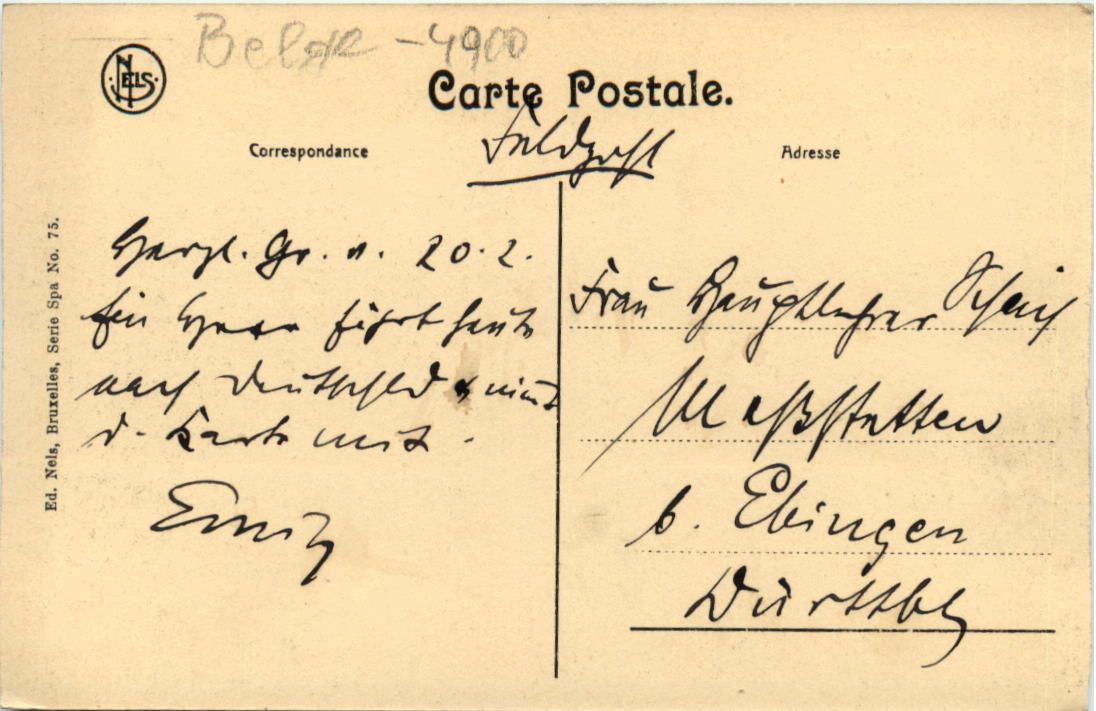 Belgie - 4900
NELS.
Carte Postale.
Feldpost
Correspondance
Adresse
Ed. Nels, Bruxelles, Serie Spa No. 75.
Herzl. Gr. v. 20.2.
Ein Herr fährt heute
nach Deutschld & nimt
d. Karte mit.
Frau Hauptlehrer
Meßstetten
b. Ebingen
Württbg